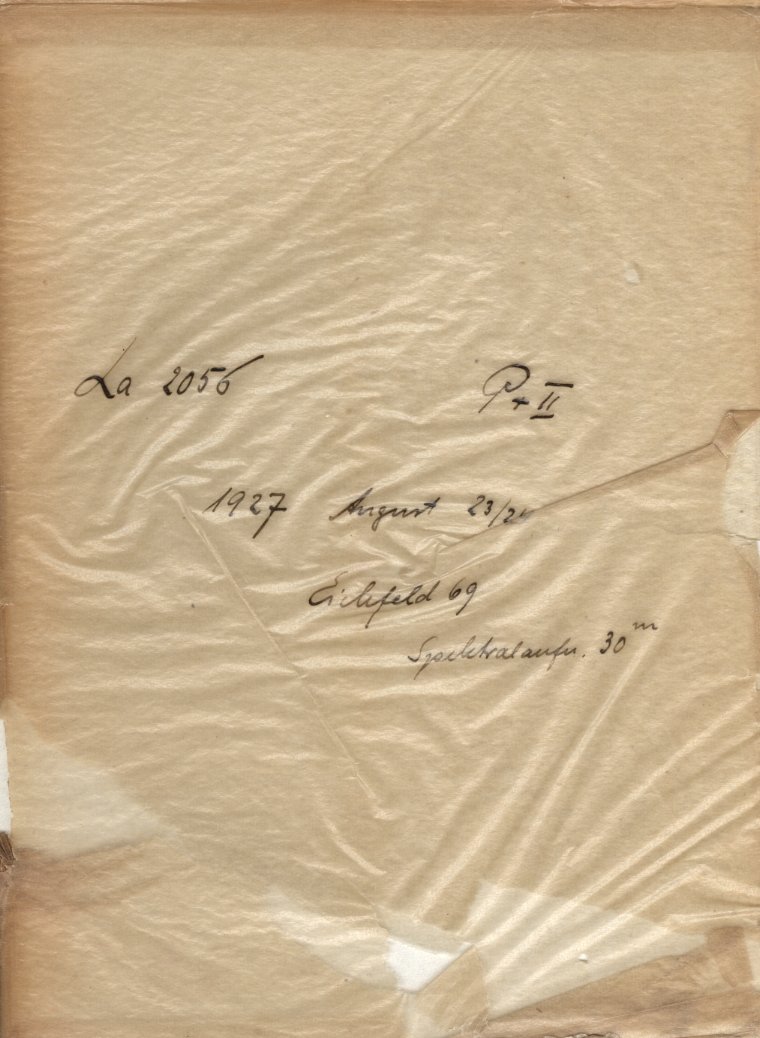 La 2056 P + II
1927 August 23/24
Eichfeld 69
Spektralaufn. 30 m